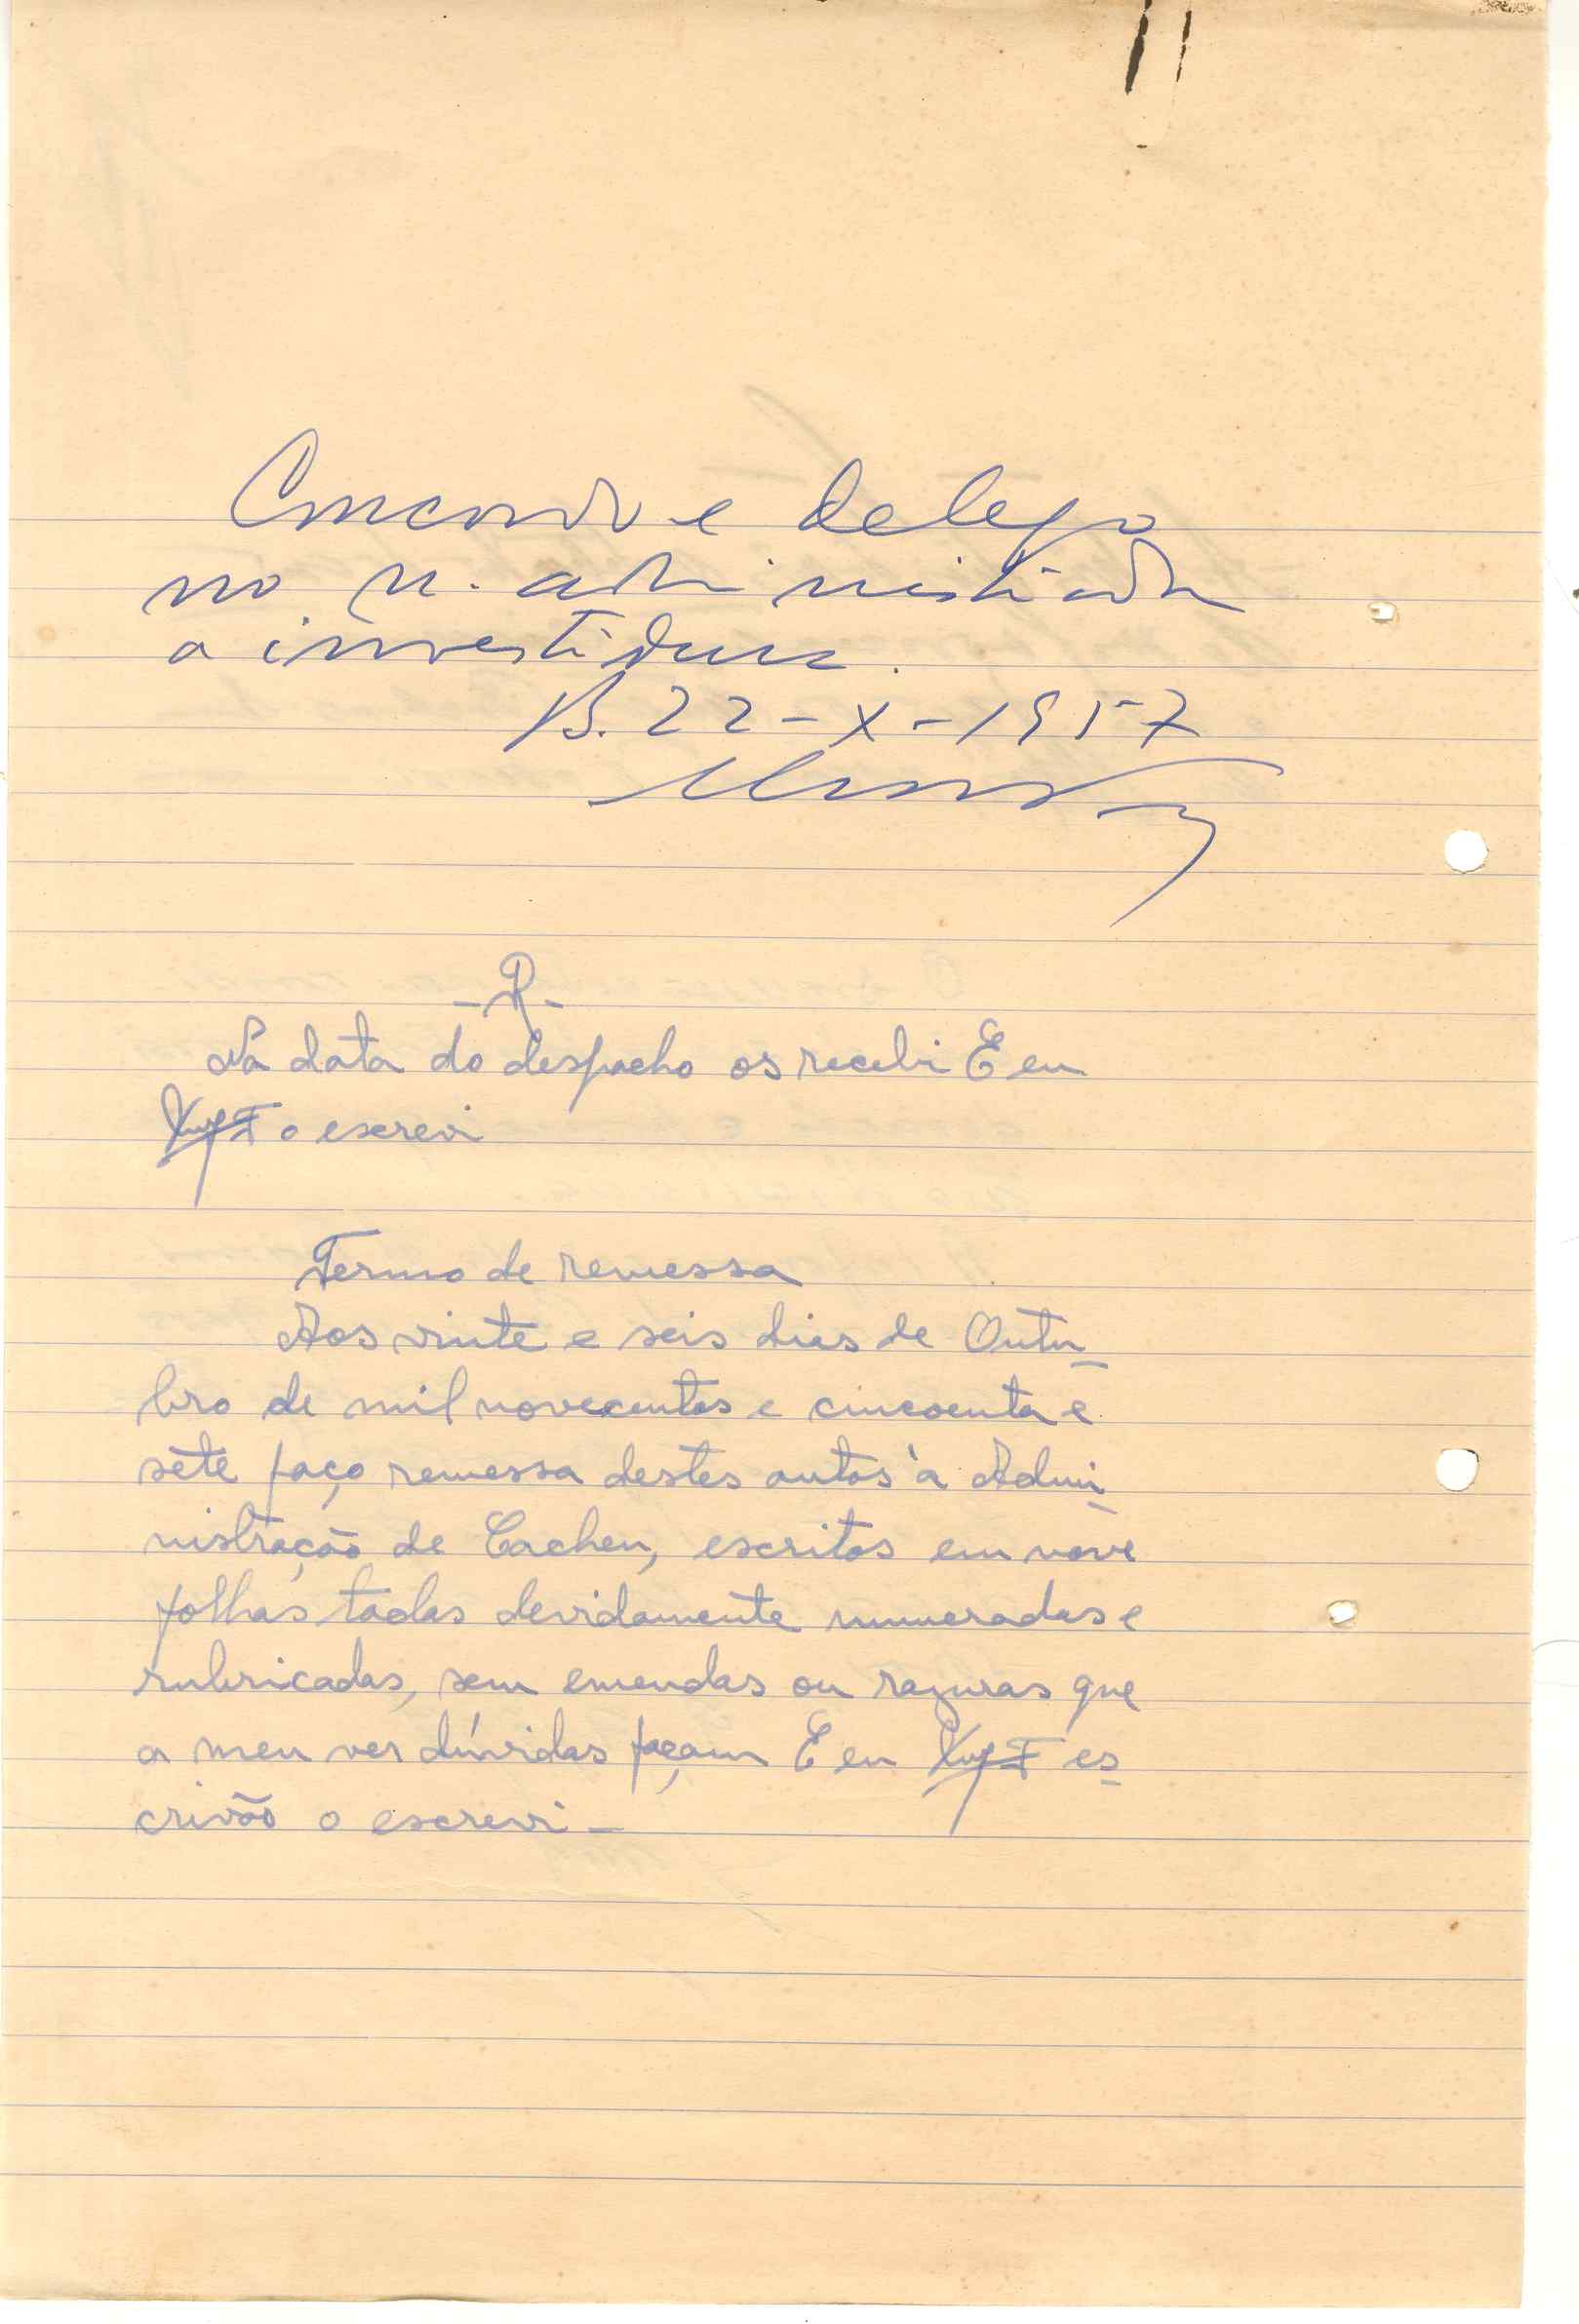 Concordo e delego
no sr. administrador
a investidura.
B. 22-X-1957
-R-
Na data do despacho os recebi E eu
o escrevi
Termo de remessa
Aos vinte e seis dias de Outu-
bro de mil novecentos e cincoenta e
sete faço remessa destes autos à Admi-
nistração de Cacheu, escritos em nove
folhas todas devidamente numeradas e
rubricadas, sem emendas ou razuras que
a meu ver dúvidas façam E eu es-
crivão o escrevi -